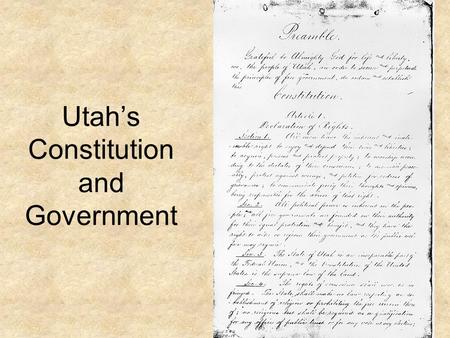 Utah's
Constitution
and
Government
Preamble.
Grateful to Almighty God for life and liberty,
we, the people of Utah, in order to secure and perpetuate
the principles of free government, do ordain and establish
this
Constitution.
Article 1.
Declaration of Rights.
Section 1. All men have the inherent and inali-
enable right to enjoy and defend their lives and liberties;
to acquire, possess and protect property; to worship accor-
ding to the dictates of their consciences; to assemble peace-
ably, protest against wrongs, and petition for redress of
grievances; to communicate freely their thoughts and opinions,
being responsible for the abuse of that right.
Sec. 2. All political power is inherent in the peo-
ple; and all free governments are founded on their authority
for their equal protection and benefit, and they have the
right to alter or reform their government as the public wel-
fare may require.
Sec. 3. The State of Utah is an inseparable part of
the Federal Union, and the Constitution of the United
States is the supreme law of the land.
Sec. 4. The rights of conscience shall never be in-
fringed. The State shall make no law respecting an es-
tablishment of religion or prohibiting the free exercise there-
of; no religious test shall be required as a qualification
for any office of public trust or for any vote at any election;